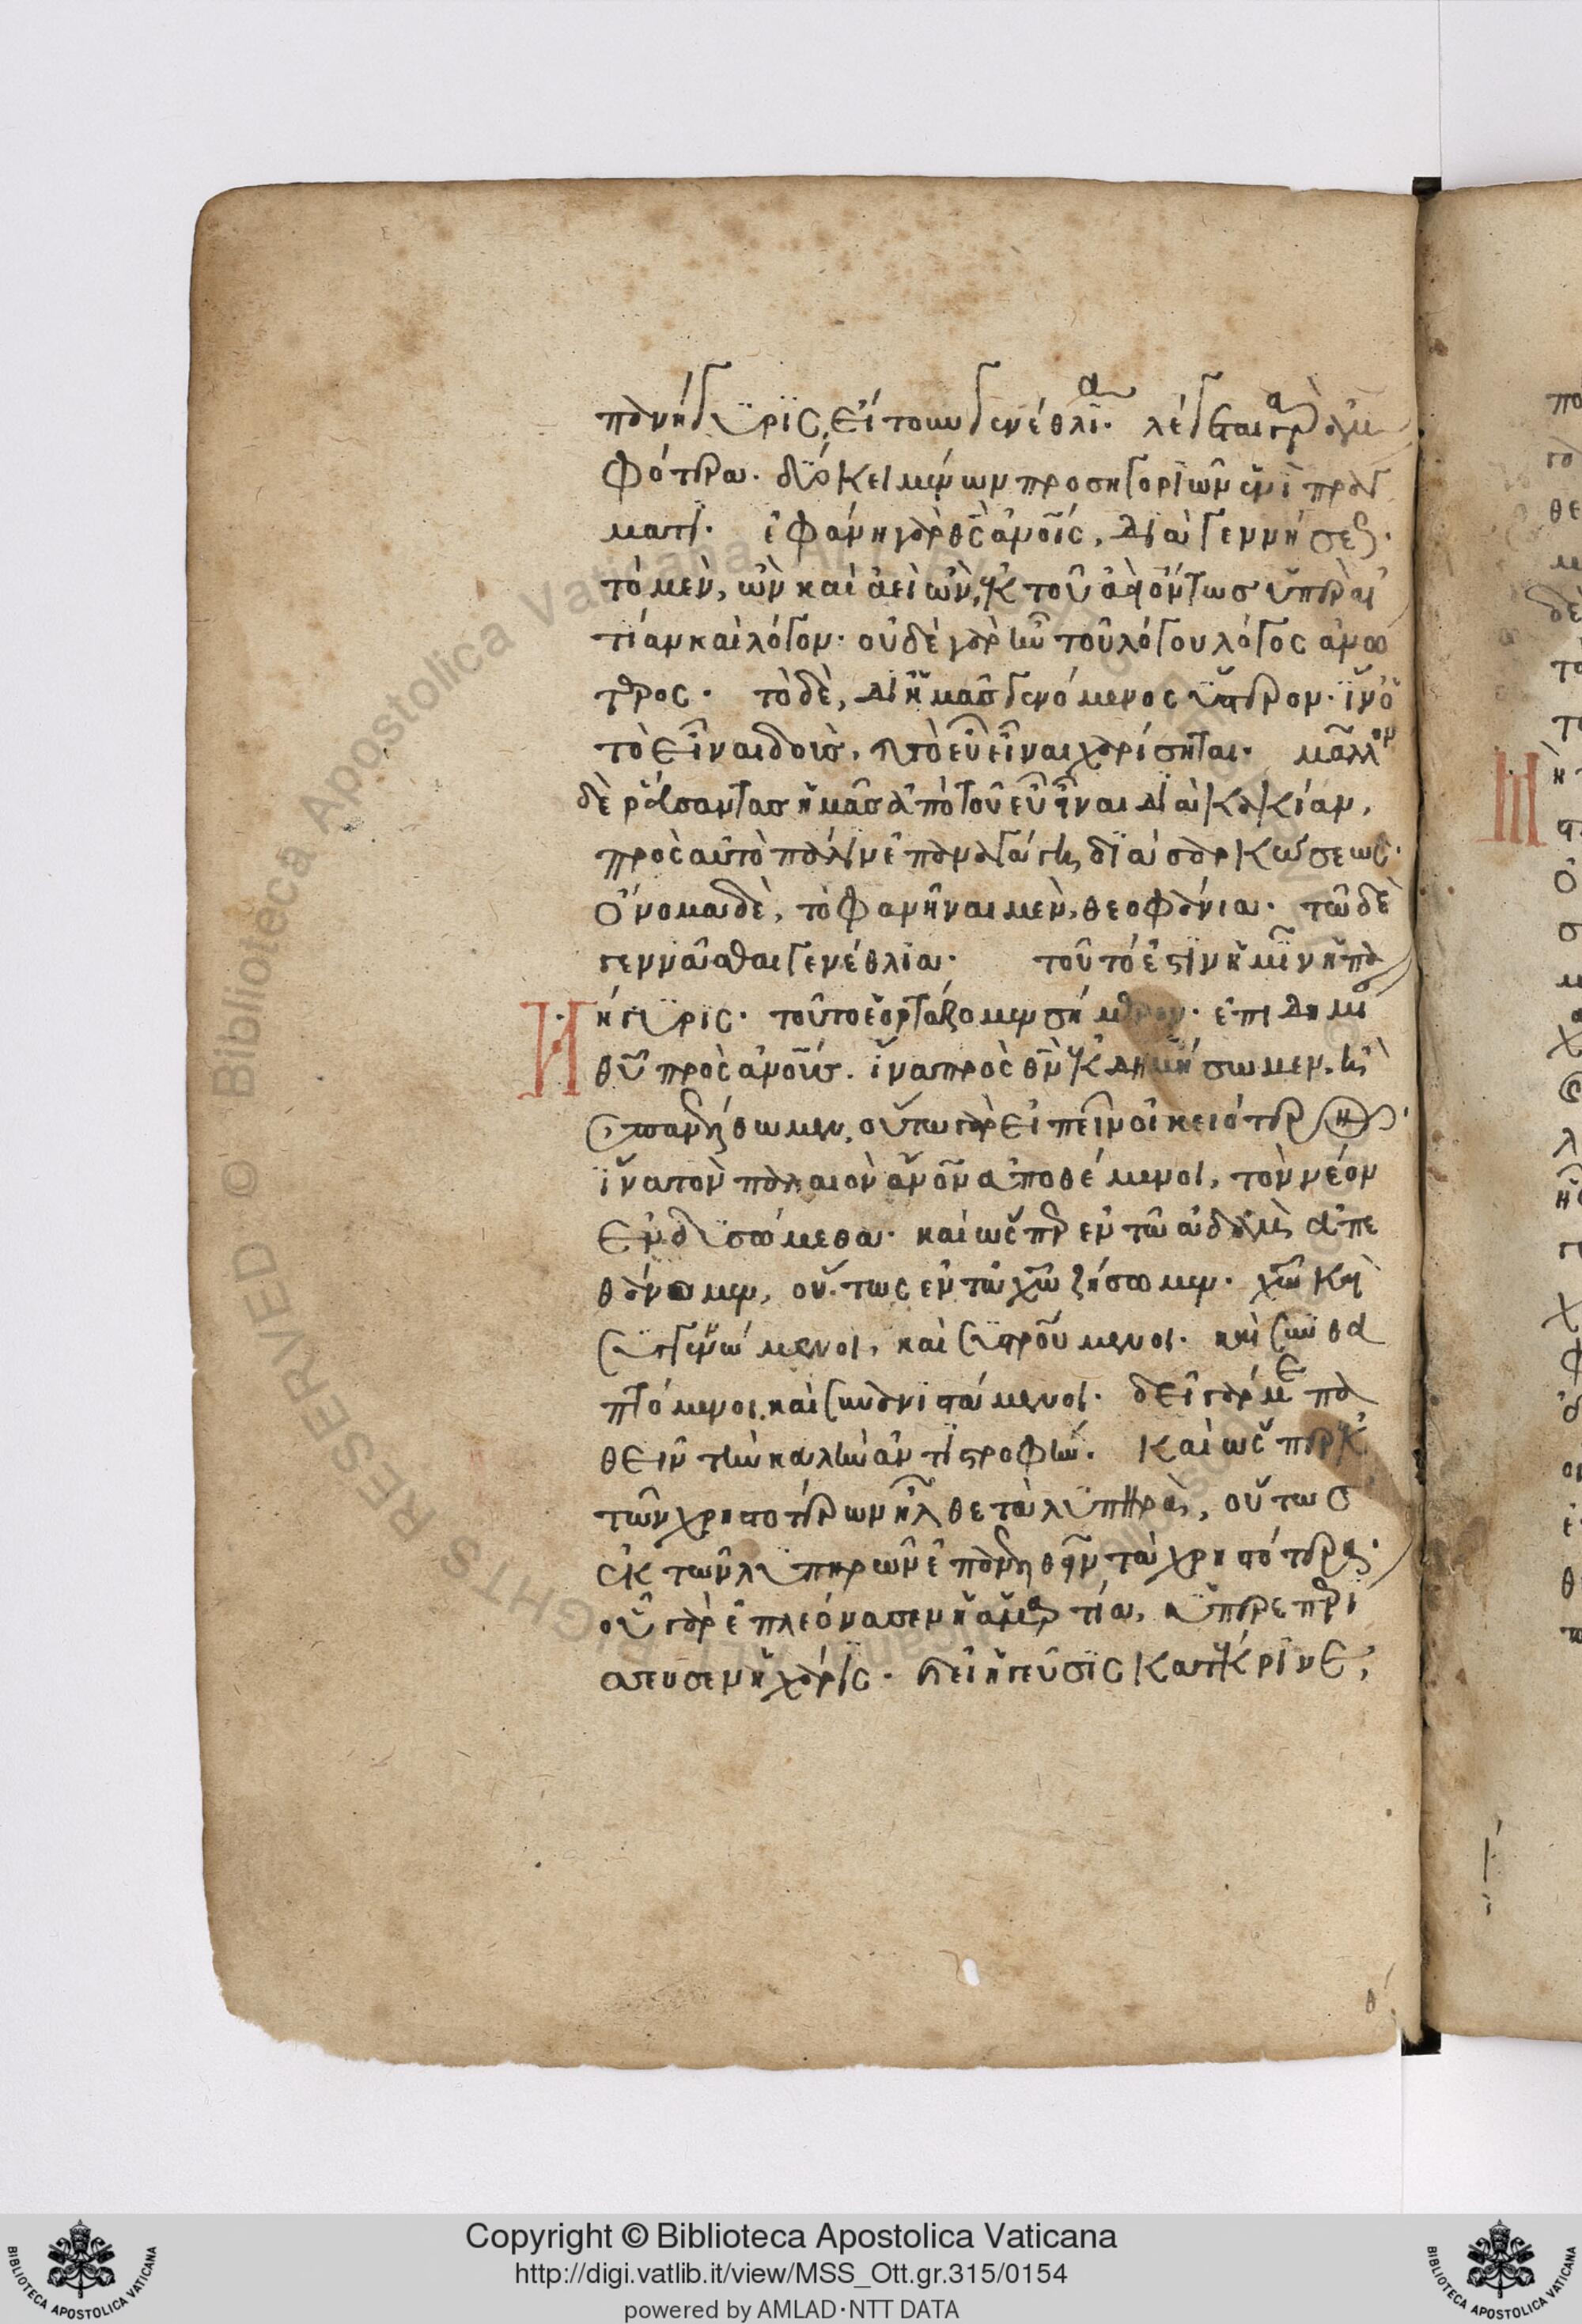 πανήγυρις, εἴτουν γενέθλια· λέγεται γὰρ ἀμ
φότερα· δύο κειμένων προσηγοριῶν ἑνὶ πράγ
ματι· ἐφάνη γὰρ θς ἀνοις, διὰ γεννήσεως·
τὸ μὲν, ὢν καὶ ἀεὶ ὢν, ἐκ τοῦ ἀεὶ ὄντως ὑπὲρ αἰ
τίαν καὶ λόγον· οὐδὲ γὰρ ἦν τοῦ λόγου λόγος ἀνώ
τερος· τὸ δὲ, δι ἡμᾶς γενόμενος ὕστερον· ἵν ὁ
τὸ εἶναι δοὺς, καὶ τὸ εὖ εἶναι χαρίσηται· μᾶλλον
δὲ ῥεύσαντας ἡμᾶς ἀπὸ τοῦ εὖ εἶναι διὰ κακίαν,
πρὸς αὐτὸ πάλιν ἐπαναγάγη διὰ σαρκώσεως·
ὄνομα δὲ, τὸ φανῆναι μὲν, θεοφάνια· τῶ δὲ
γεννᾶσθαι γενέθλια· τοῦτό ἐστιν ἡμῖν ἡ πα
νήγυρις· τοῦτο ἑορτάζομεν σήμερον· ἐπιδημί
θυ πρὸς ἀνους. ἵνα πρὸς θν ἐκδημήσωμεν, ἢ
ἐπανέλθωμεν, οὕτω γὰρ εἰπεῖν οἰκειότερον·
ἵνα τὸν παλαιὸν ἀνον ἀποθέμενοι, τὸν νέον
ἐνδυσώμεθα· καὶ ὥσπερ ἐν τῶ ἀδὰμ ἀπε
θάνομεν, οὕτως ἐν τῶ χω ζήσωμεν· χω καὶ
συγγενώμενοι, καὶ συσταυρούμενοι· καὶ συνθα
πτόμενοι, καὶ συνανιστάμενοι· δεῖ γάρ με πα
θεῖν τὴν καλὴν ἀντιστροφήν· καὶ ὥσπερ ἐκ
τῶν χρηστοτέρων ἦλθε τὰ λυπηρὰ, οὕτως
ἐκ τῶν λυπηρῶν ἐπανελθεῖν τὰ χρηστότερα·
οὗ γὰρ ἐπλεόνασεν ἡ ἁμαρτία, ὑπερεπερί
σσευσεν ἡ χάρις· καὶ εἰ ἡ γεῦσις κατέκρινε,
θ
Copyright © Biblioteca Apostolica Vaticana
http://digi.vatlib.it/view/MSS_Ott.gr.315/0154
powered by AMLAD·NTT DATA